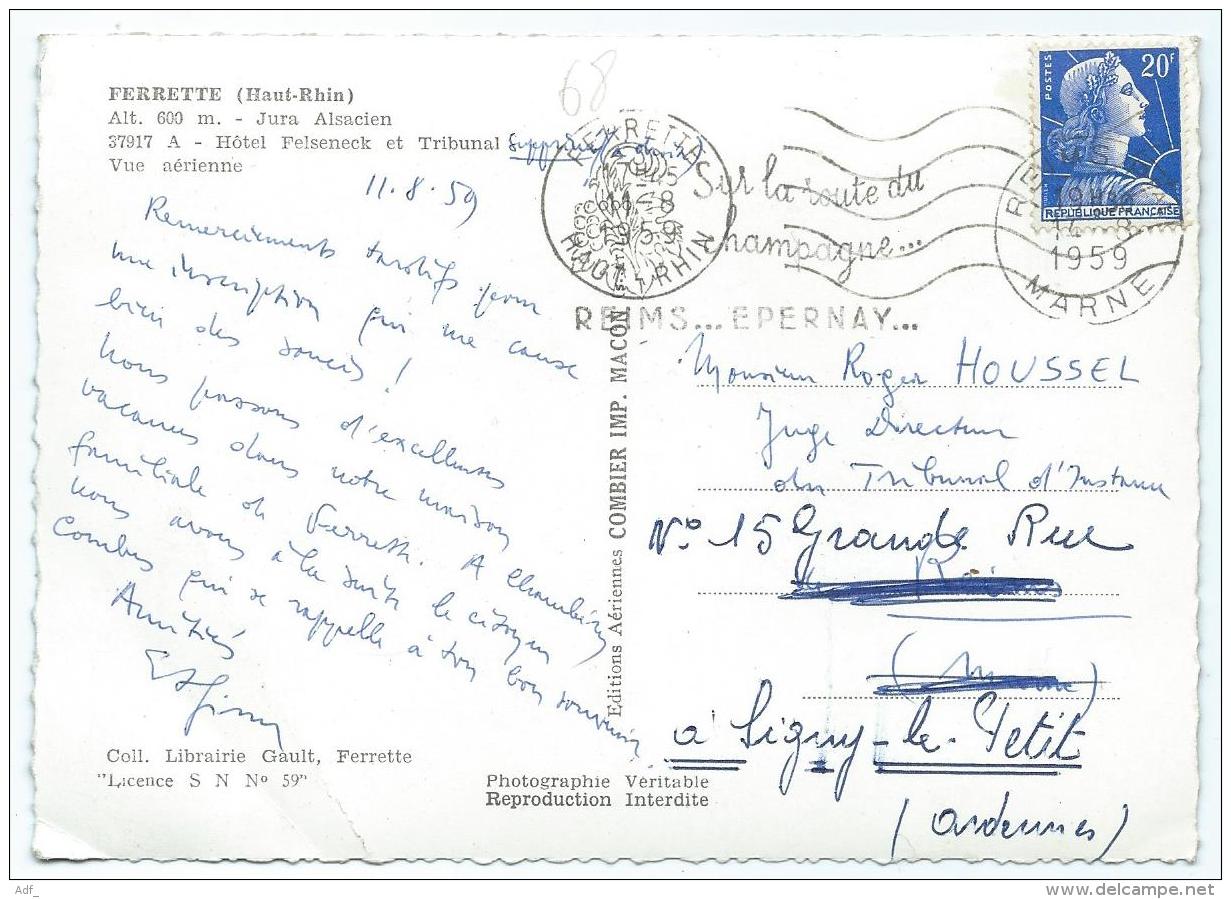 FERRETTE (Haut-Rhin)
Alt. 600 m. - Jura Alsacien
37917 A - Hôtel Felseneck et Tribunal supprimé
Vue aérienne
68
11.8.59
Remerciements tardifs pour
une inscription qui me cause
bien des soucis !
Nous passons d'excellentes
vacances dans notre maison
familiale de Ferrette. A Chambéry
nous avons à la suite le citoyen
Combes qui se rappelle à ton bon souvenir
Amitiés
Coll. Librairie Gault, Ferrette
"Licence S N Nº 59"
Photographie Véritable
Reproduction Interdite
Editions Aériennes COMBIER IMP. MACON
FERRETTE
17 45
11-8
1959
HAUT-RHIN
Sur la route du
Champagne...
REIMS... EPERNAY...
POSTES
20F
REPUBLIQUE FRANÇAISE
1959
MARNE
Monsieur Roger HOUSSEL
Juge Directeur
du Tribunal d'Instance
Nº 15 Grande Rue
à Signy-le-Petit
(Ardennes)
Adf_
www.delcampe.net